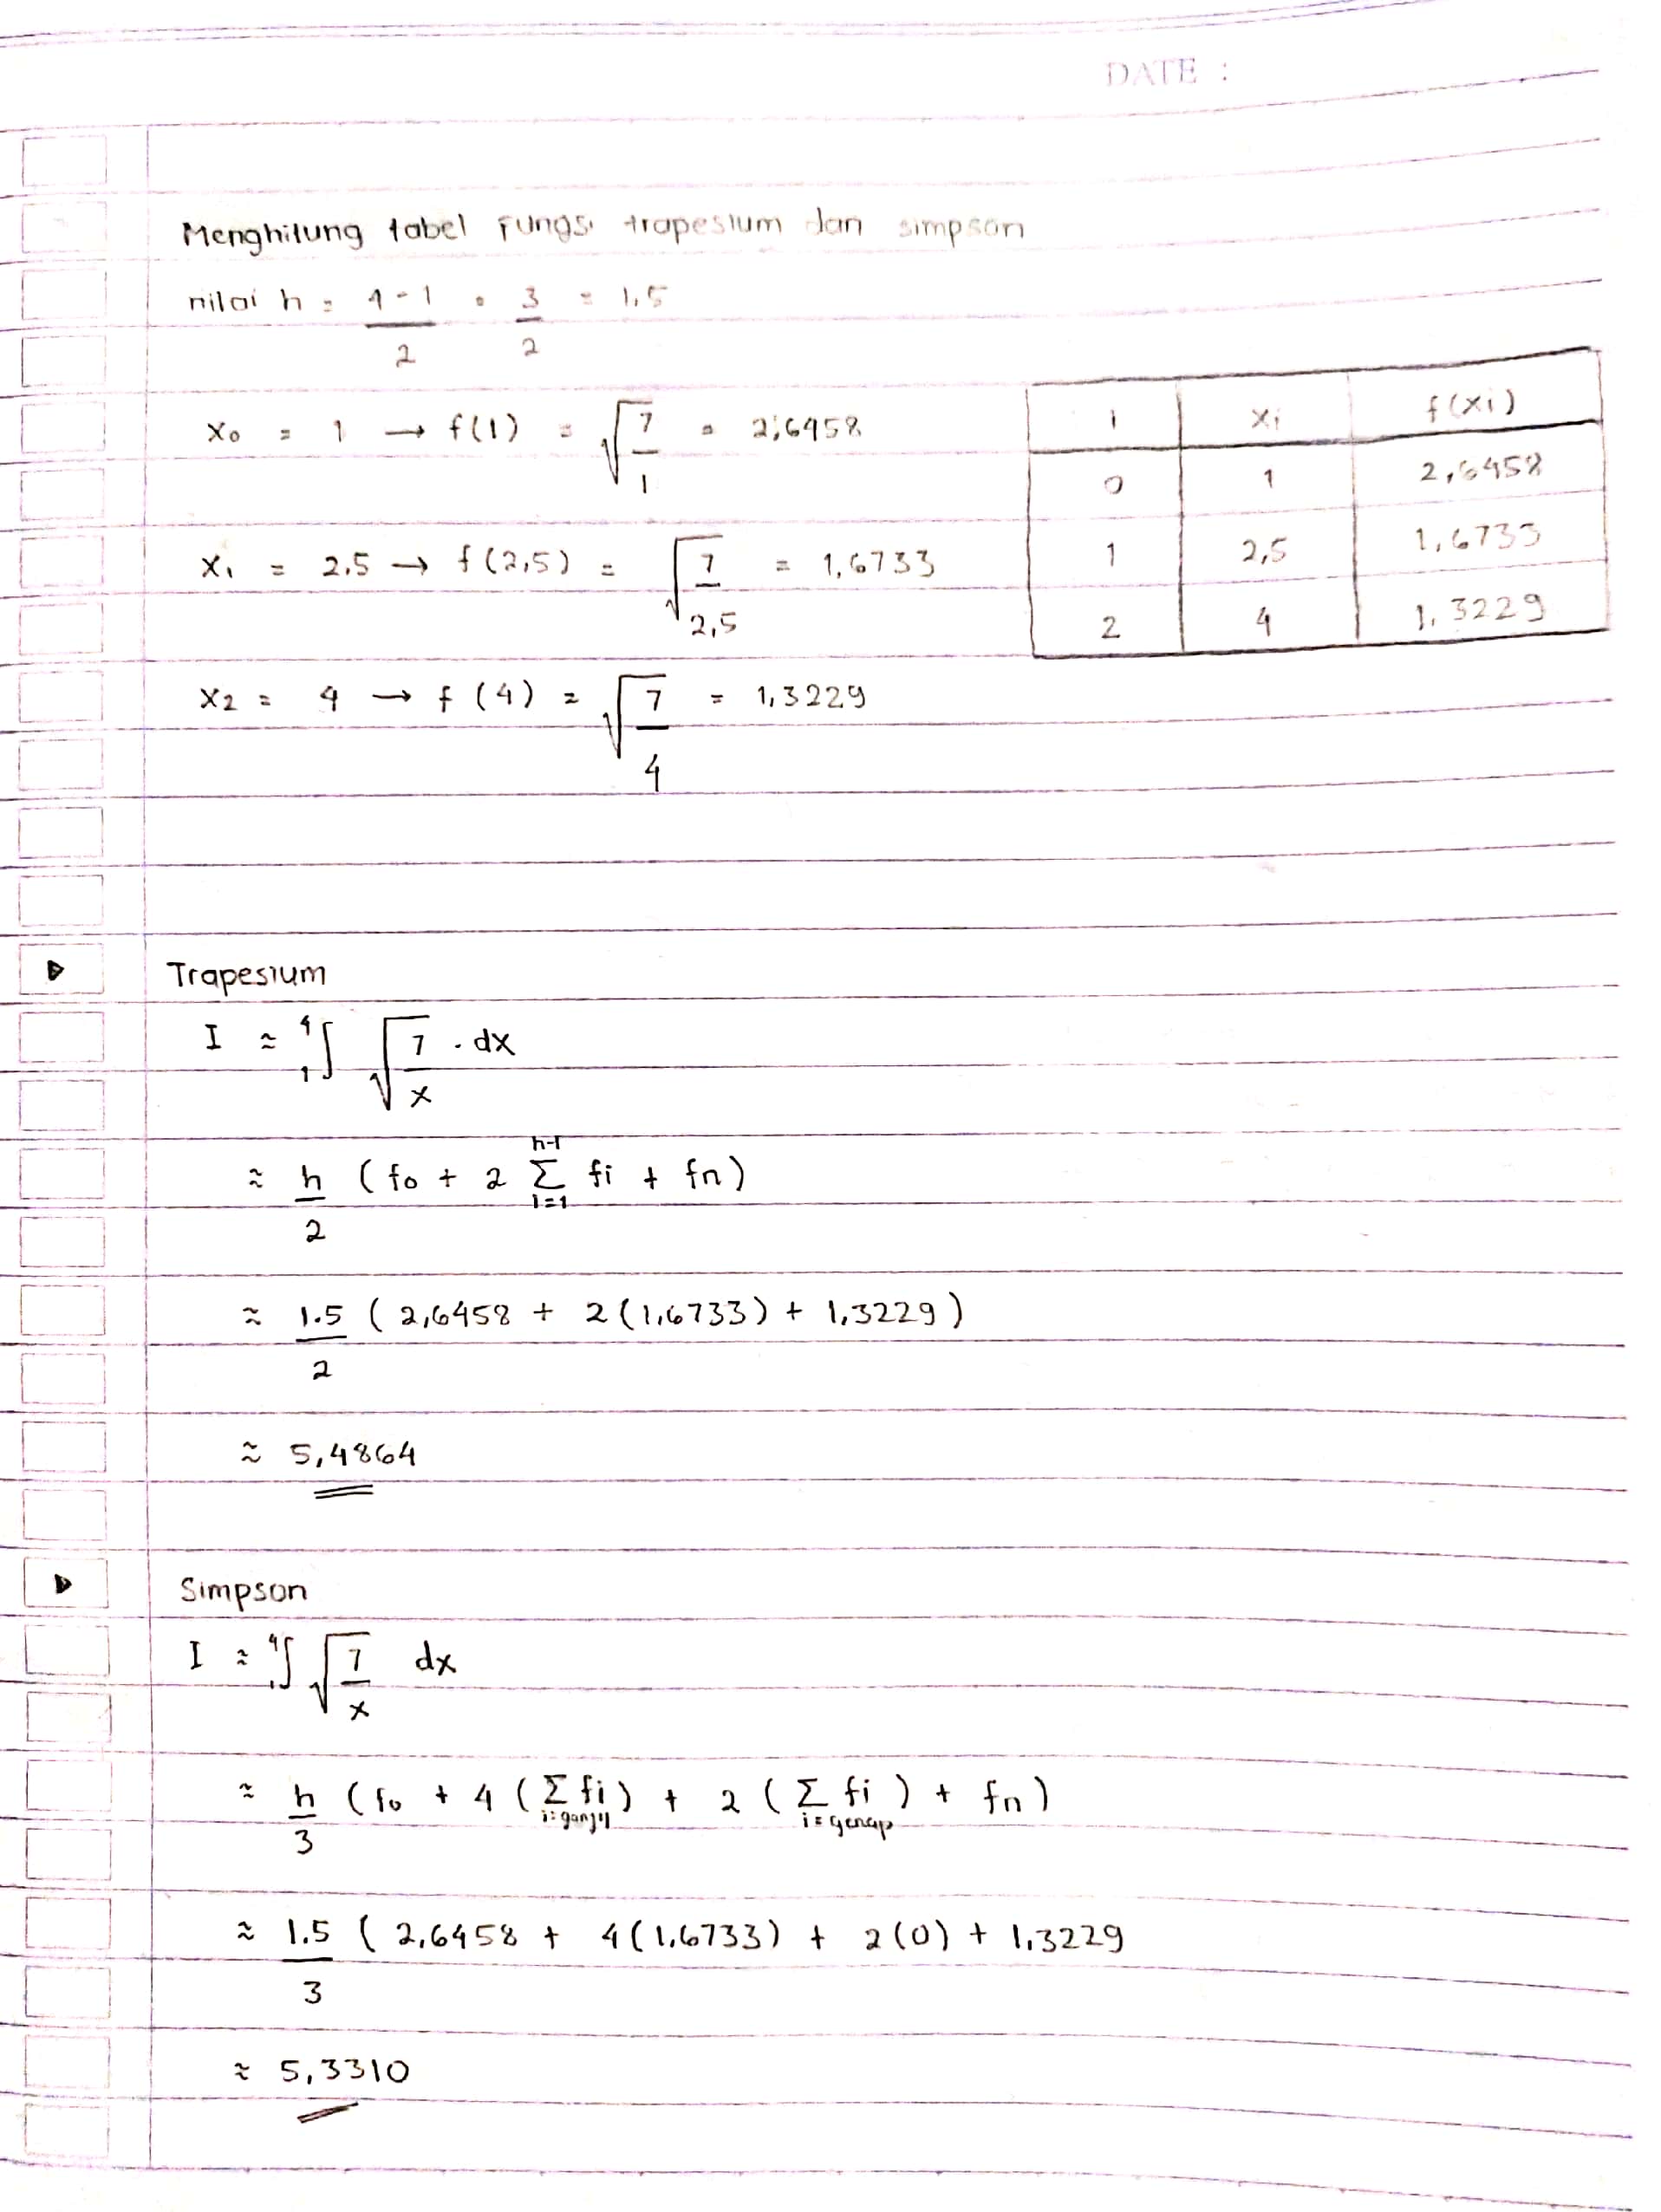 DATE :
Menghitung tabel fungsi trapesium dan simpson
nilai h = 4-1/2 = 3/2 = 1,5
x0 = 1 → f(1) = √7/1 = 2,6458
x1 = 2,5 → f(2,5) = √7/2,5 = 1,6733
x2 = 4 → f(4) = √7/4 = 1,3229
i xi f(xi)
0 1 2,6458
1 2,5 1,6733
2 4 1,3229
Trapesium
I ≈ 4∫1 √7/x . dx
≈ h/2 (fo + 2 Σ i=1 n-1 fi + fn)
≈ 1.5/2 (2,6458 + 2(1,6733) + 1,3229)
≈ 5,4864
Simpson
I ≈ 4∫1 √7/x dx
≈ h/3 (fo + 4 (Σ fi) i=ganjil + 2 (Σ fi) i=genap + fn)
≈ 1.5/3 (2,6458 + 4(1,6733) + 2(0) + 1,3229
≈ 5,3310